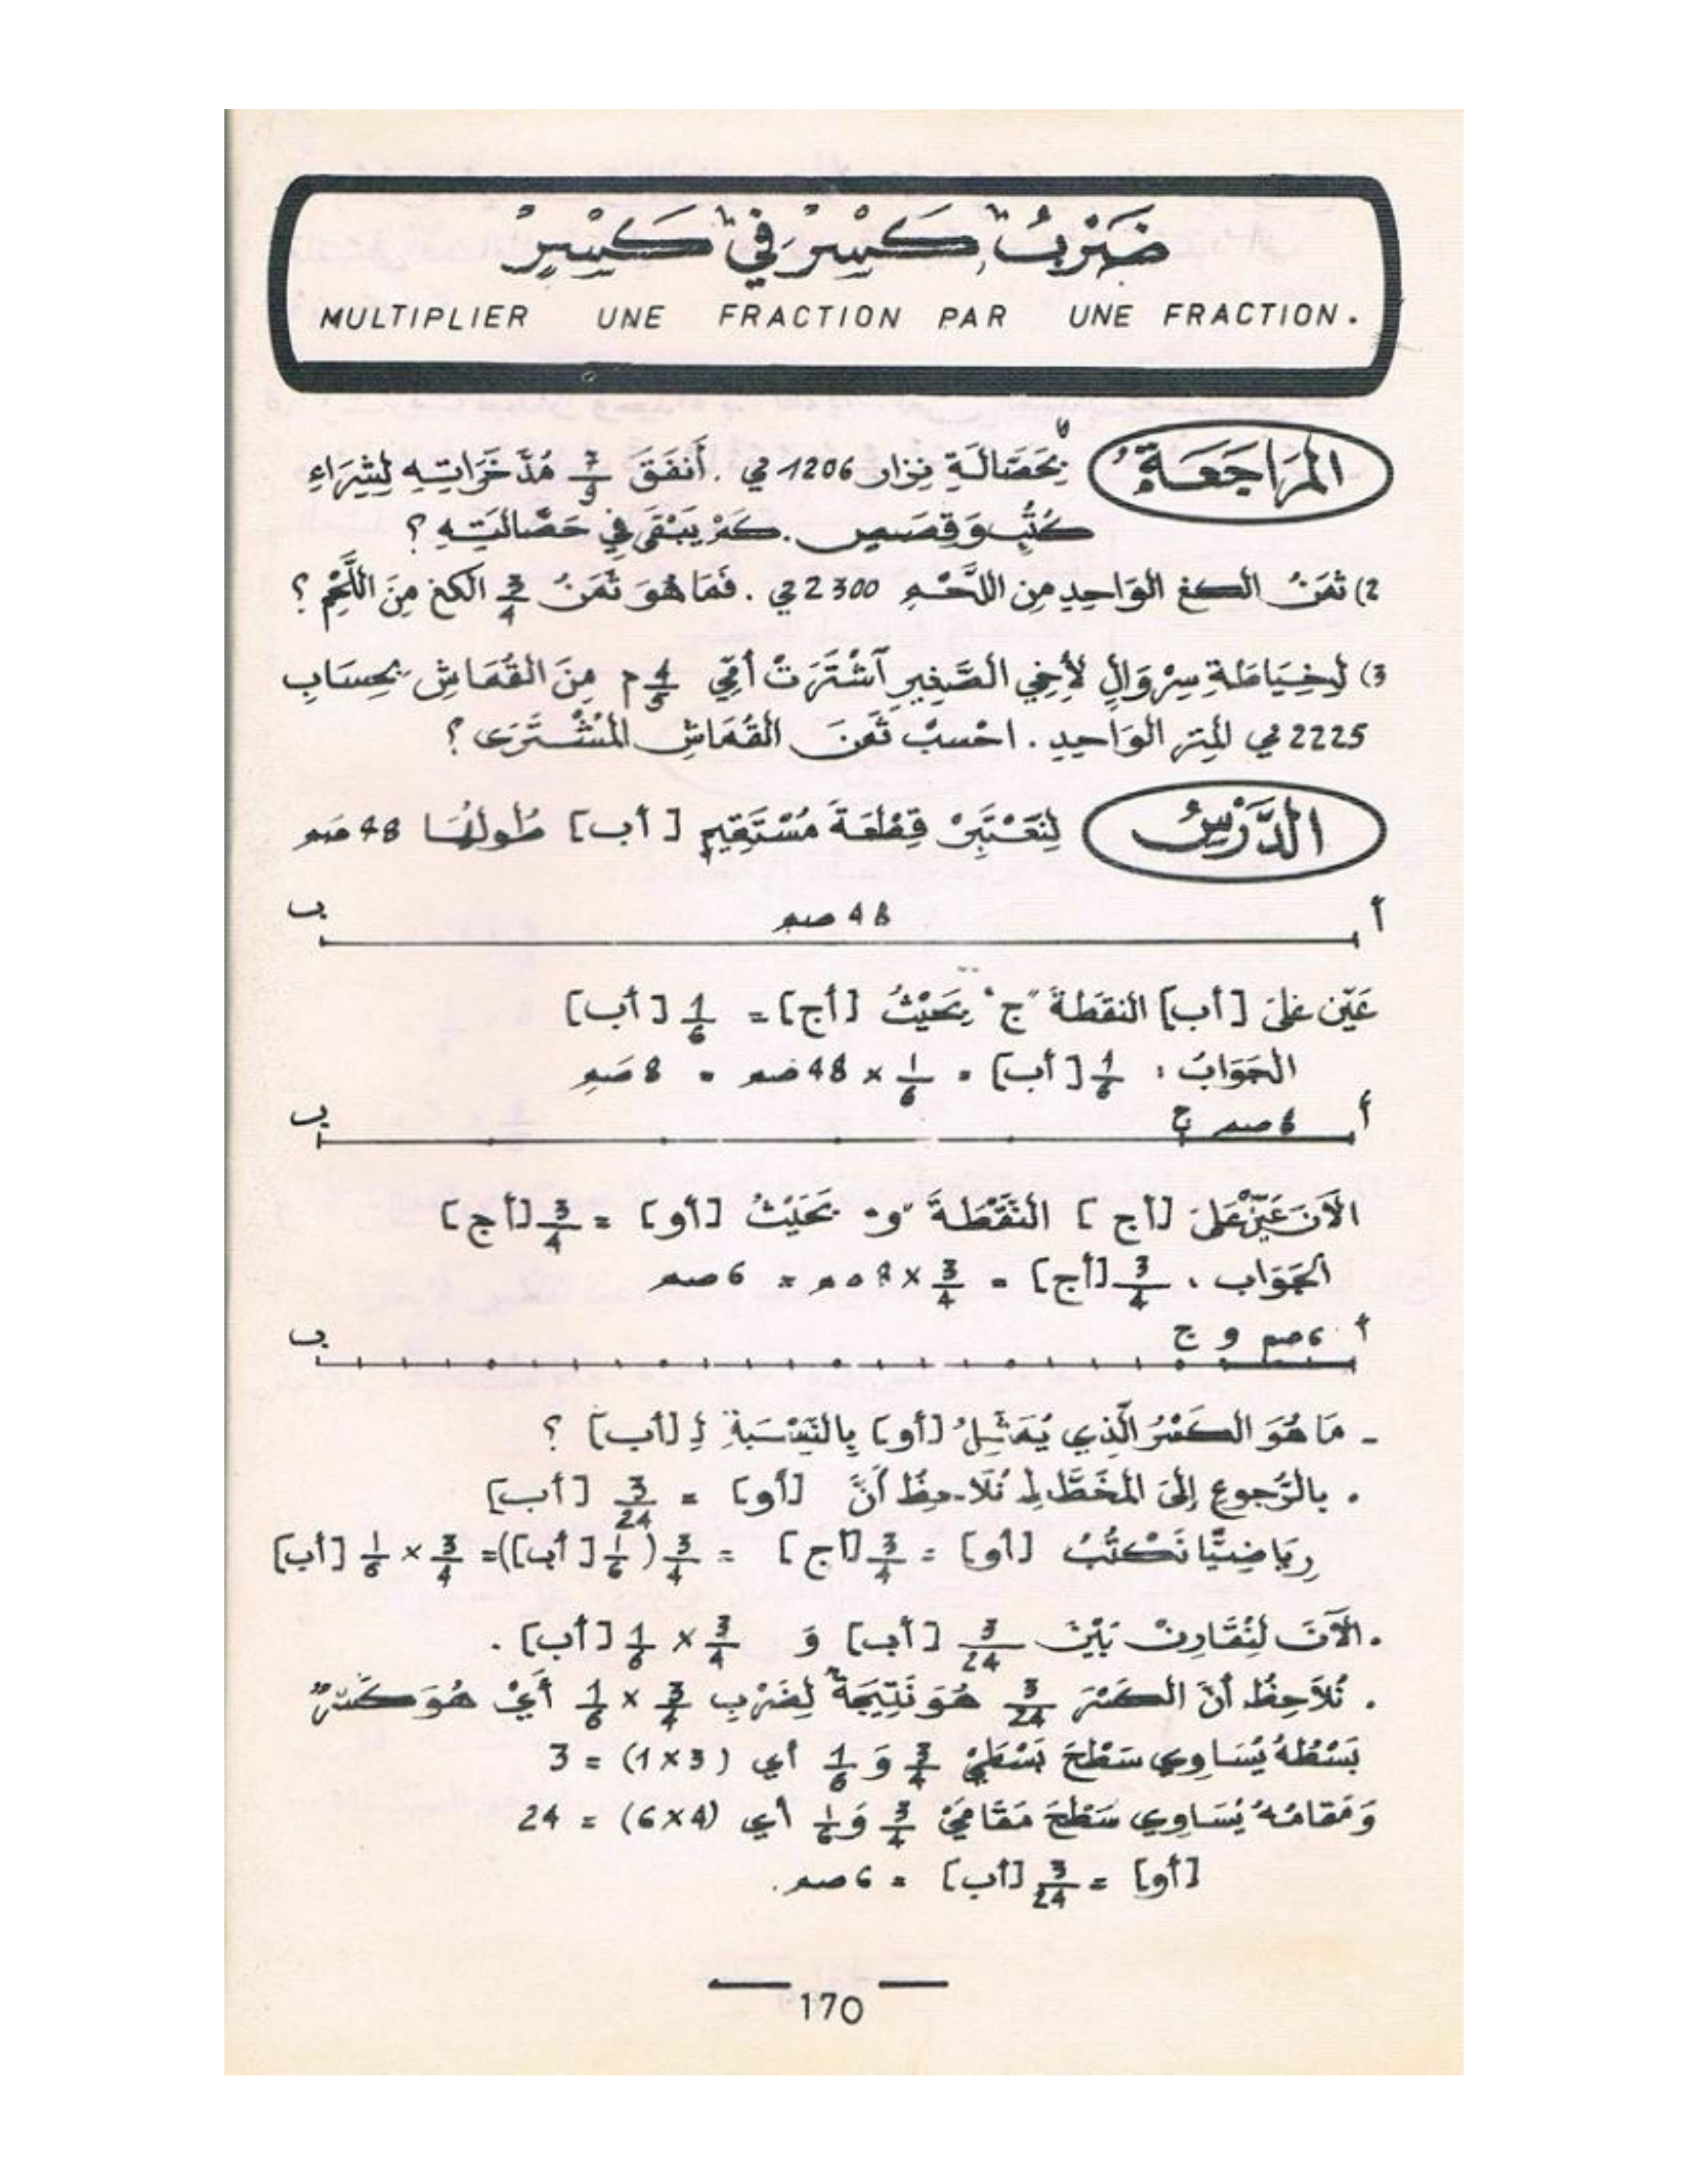 ضَرْبُ كَسْرٍ فِي كَسْرٍ
MULTIPLIER UNE FRACTION PAR UNE FRACTION.
المُرَاجَعَةُ
بِحَصَّالَةِ نِزار 1206 مي . أَنفَقَ 7/9 مُدَّخَرَاتِهِ لِشِرَاءِ
كُتُبٍ وَقِصَصٍ . كَمْ يَبْقَى فِي حَصَّالَتِهِ ؟
2) ثَمَنُ الكغ الوَاحِدِ مِن اللَّحْمِ 2300 مي . فَمَا هُوَ ثَمَنُ 3/4 الكغ مِنَ اللَّحْمِ ؟
3) لِخِيَاطَةِ سِرْوَالٍ لأَخِي الصَّغِيرِ آشْتَرَتْ أُمِّي 4/5 م مِنَ القُمَاشِ بِحِسَابِ
2225 مي المِتر الوَاحِدِ . احْسبْ ثَمَنَ القُمَاشِ المُشْتَرَى ؟
الدَّرْسُ
لِنَعْتَبِرْ قِطْعَةَ مُسْتَقِيمٍ [ أب] طُولُهَا 48 صم
أ 48 صم ب
عَيِّن عَلَى [أب] النقطَةَ "ج" بِحَيْثُ [أج] = 1/6 [أب]
الجَوَابُ : 1/6 [أب] = 1/6 × 48 صم = 8 صم
أ 6 صم ج ب
الآنَ عَيِّنْ عَلَى [أج] النُّقْطَةَ "و" بِحَيْثُ [أو] = 3/4 [أج]
الجَوَاب : 3/4 [أج] = 3/4 × 8 صم = 6 صم
أ 6 صم و ج ب
- مَا هُوَ الكَسْرُ الَّذِي يُمَثِّلُ [أو] بِالنِّسْبَةِ لِـ [أب] ؟
. بالرُّجوعِ إِلَى المُخَطَّطِ نُلَاحِظُ أَنَّ [أو] = 3/24 [أب]
رِيَاضِيًّا نَكْتُبُ [أو] = 3/4 [أج] = 3/4 (1/6 [أب]) = 3/4 × 1/6 [أب]
. الآنَ لِنُقَارِنْ بَيْنَ 3/24 [أب] وَ 3/4 × 1/6 [أب] .
. نُلَاحِظُ أَنَّ الكَسْرَ 3/24 هُوَ نَتِيجَةٌ لِضَرْبِ 3/4 × 1/6 أَيْ هُوَ كَسْرٌ
بَسْطُهُ يُسَاوِي سَطْحَ بَسْطَيْ 3/4 وَ 1/6 أي (1×3) = 3
وَمَقَامُهُ يُسَاوِي سَطْحَ مَقَامَيْ 3/4 وَ 1/6 أي (6×4) = 24
[أو] = 3/24 [أب] = 6 صم .
170